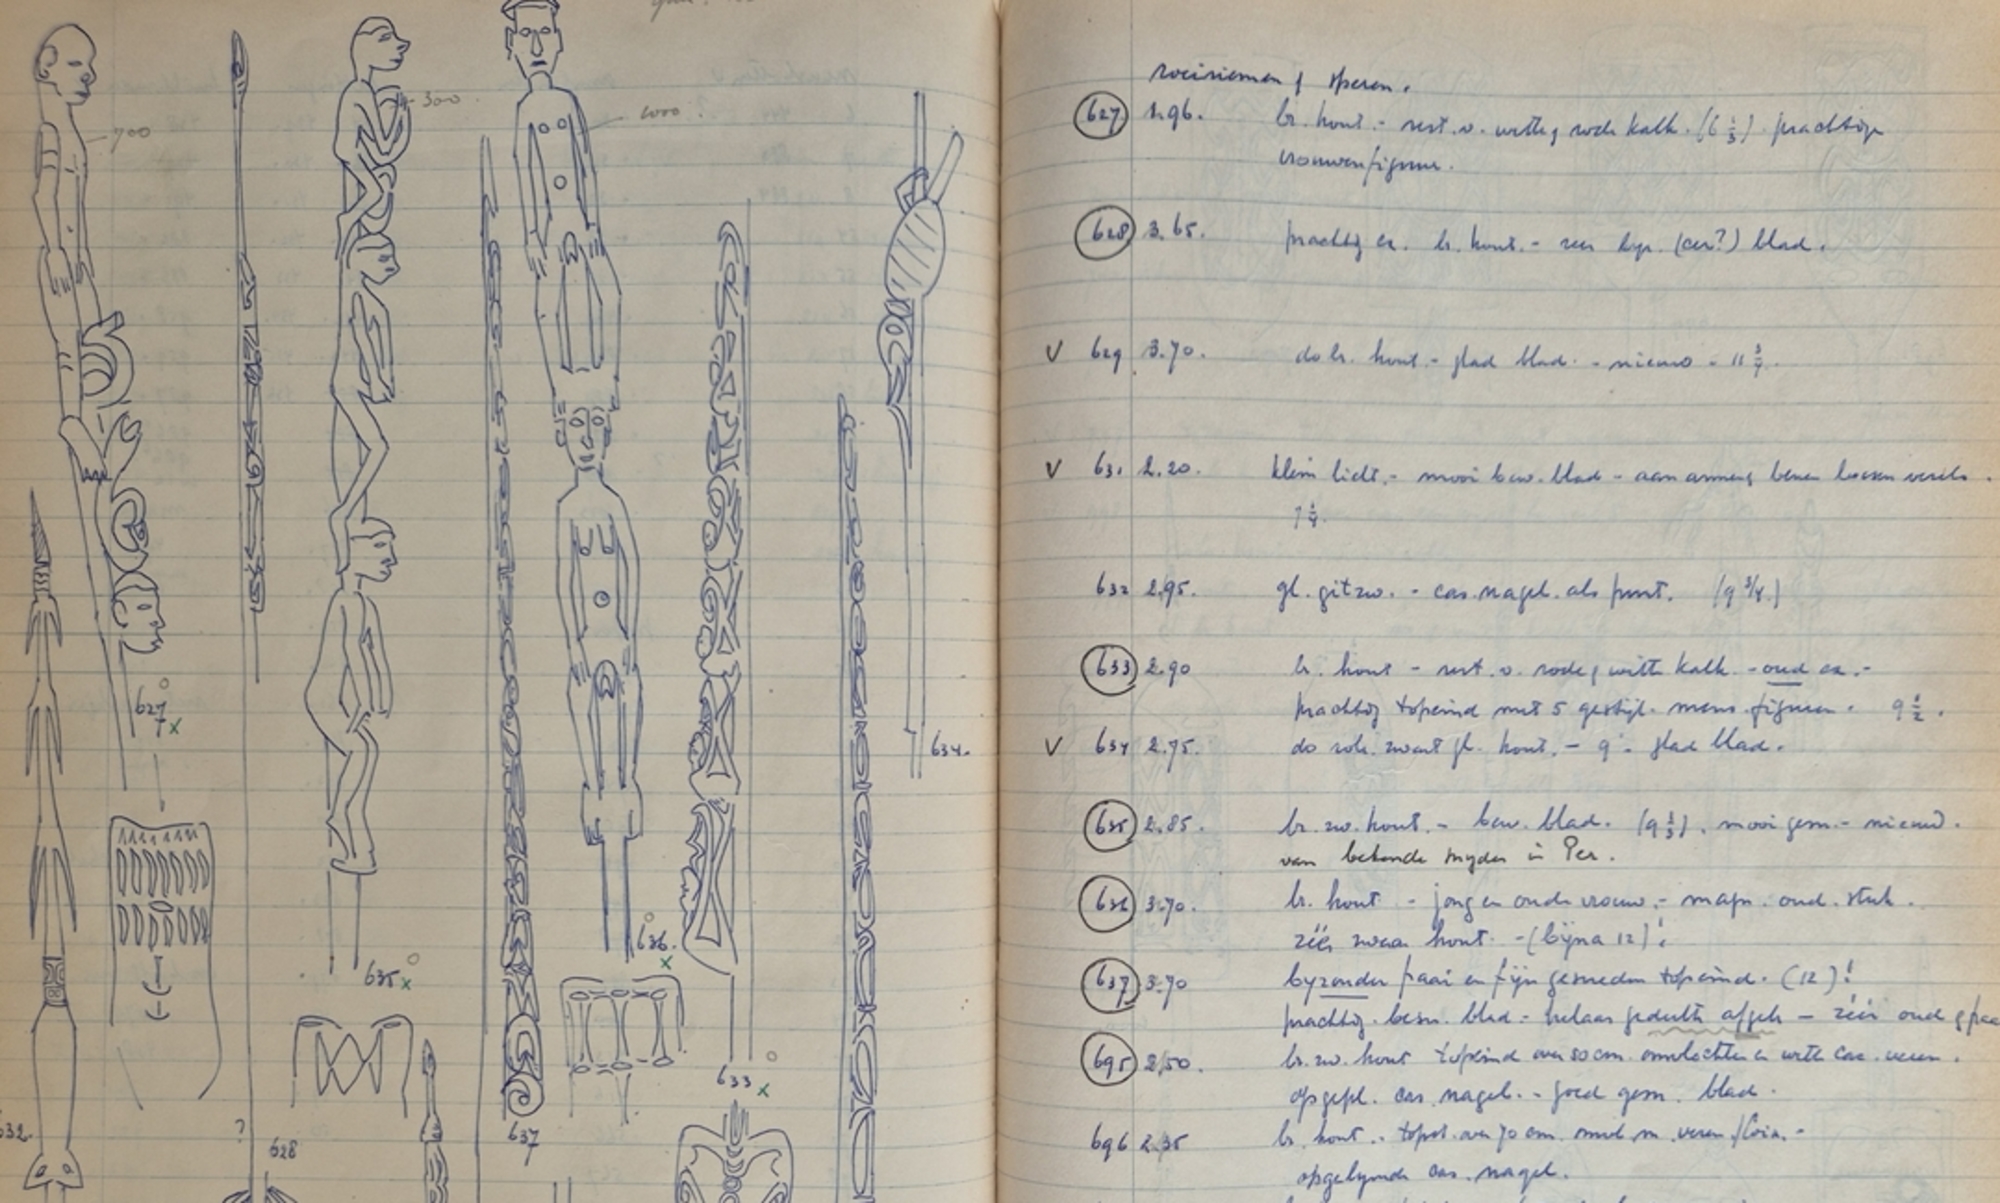 700
300
1000 ?
627 x
634.
635 x
636.
x
633 x
632
?
628
637
roeiriemen & speren.
627 1.96. br. hout. - rest. v. witte & rode kalk. (6 1/3) prachtige
vrouwenfiguur.
628 3.65. prachtig ex. br. hout. - zeer (?) blad.
V 629 3.70. do br. hout - glad blad. - nieuw - 11
V 631 2.20. klein licht. - mooi bew. blad - aan armen & benen
7 1/4.
632 2.95. gl. gitzw. - cas. nagel. als punt. (9 3/4.)
633 2.90 br. hout - rest. v. rode & witte kalk - oud ex. -
prachtig topeind met 5 gestyl. mens. figuren. 9 1/2.
V 634 2.75. do zwart gl. hout. - 9 - glad blad.
635 2.85. br. zw. hout. - bew. blad. (9 1/3). mooi gesn. - nieuw.
van bekende snyder in Per.
636 3.70. br. hout - jong en oude vrouw. - oud. stuk.
zéér zwaar hout. - (byna 12)!
637 3.70 byzonder fraai en fijn gesneden topeind. (12)!
prachtig. besn. blad. - helaas gedeelte afgeb - zéér oud &
695 2.50. br. zw. hout topeind over 50 cm. omvlochten en witte cas. veren.
opgepl. cas. nagel. - goed gesn. blad.
696 2.35 br. hout. - over 70 cm. veren -
opgelymde cas. nagel.